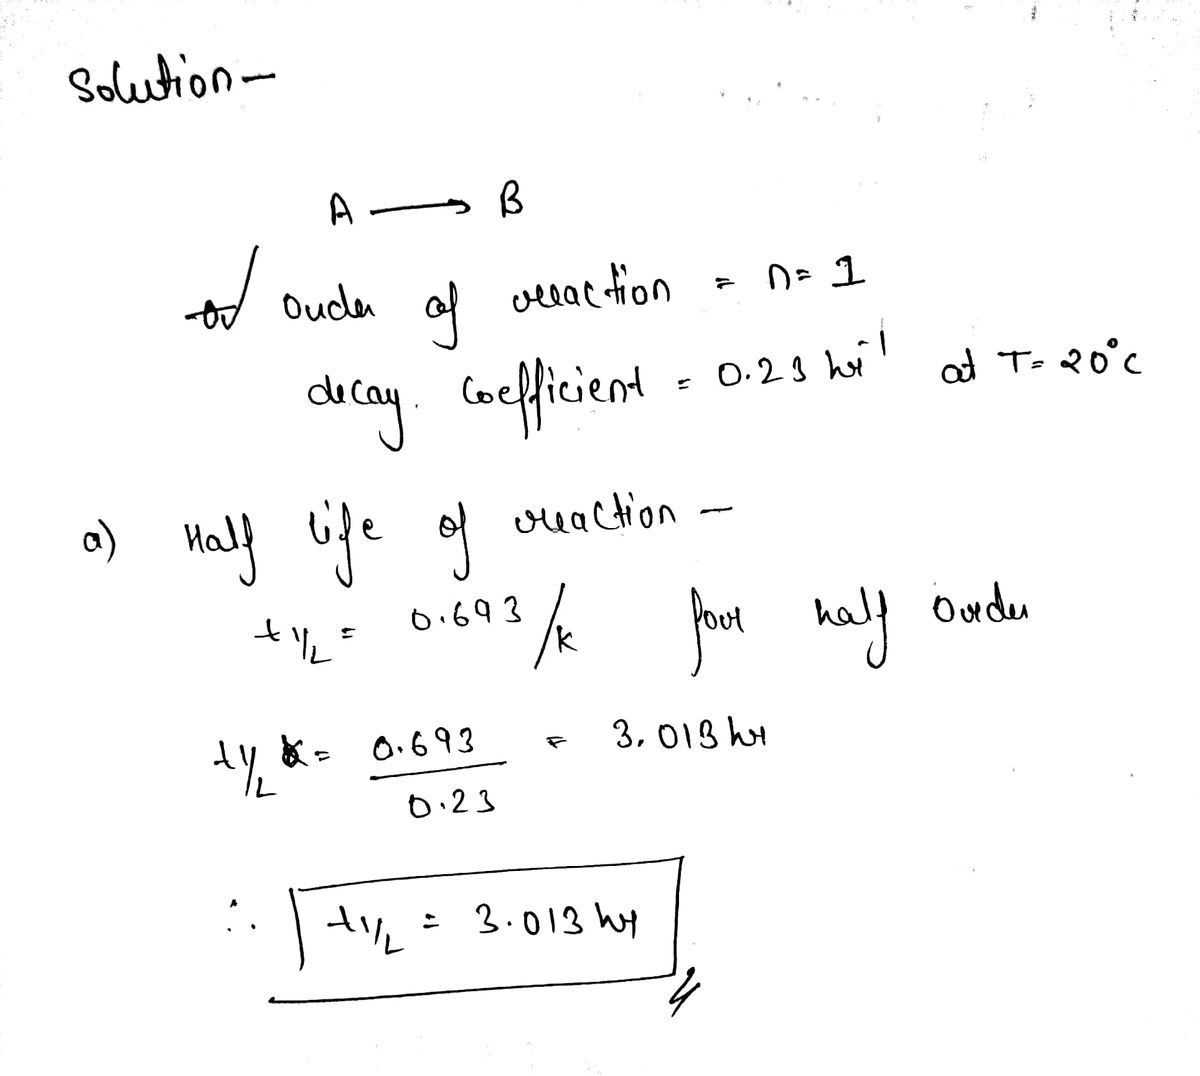 Solution -
A → B
Order of reaction = n = 1
decay. Coefficient = 0.23 hr⁻¹ at T = 20°C
a) Half life of reaction -
t1/2 = 0.693/k for half order
t1/2 = 0.693/0.23 = 3.013 hr
∴ t1/2 = 3.013 hr